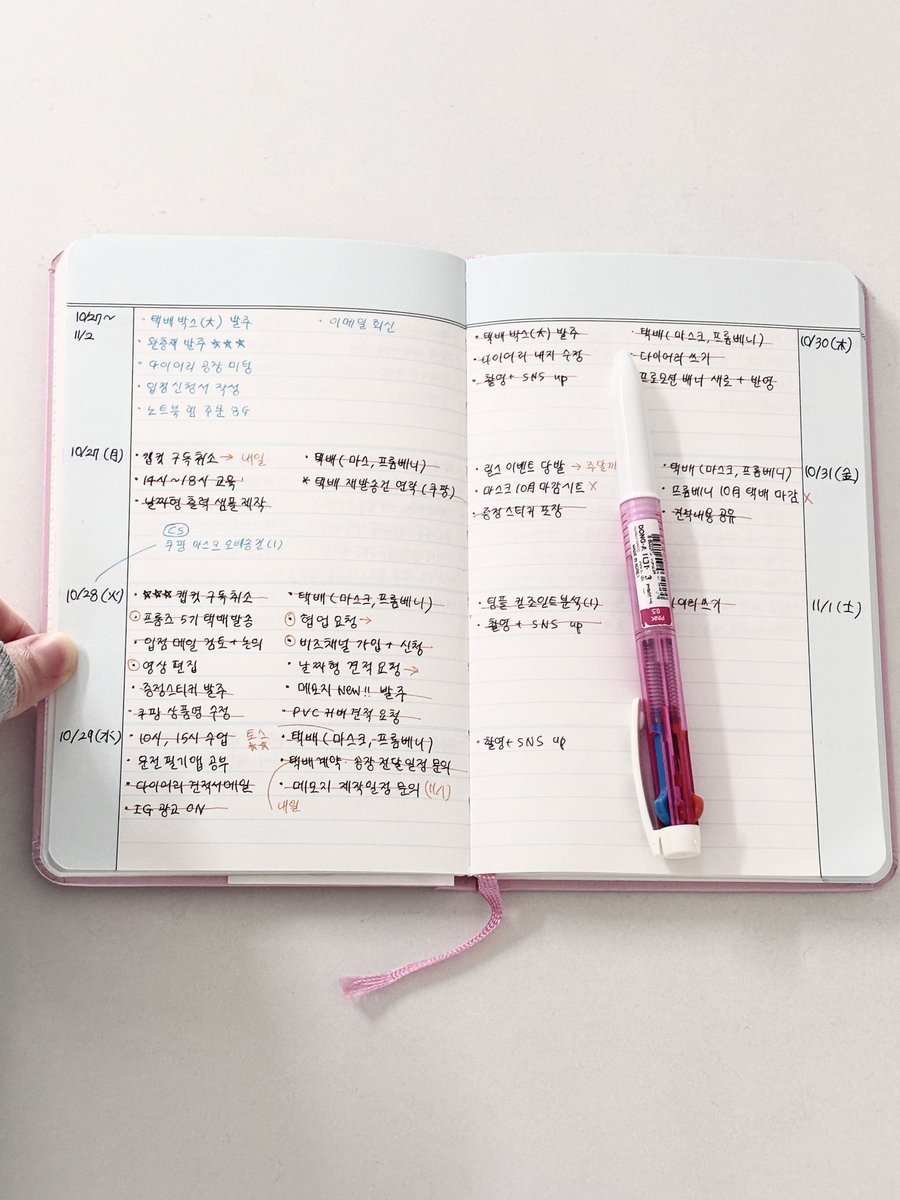 10/27~
11/2
· 택배박스(大) 발주
· 이메일 회신
· 완충재 발주 ★★★
· 다이어리 공장 미팅
· 입점신청서 작성
· 노트북 립 주문 BG
10/27 (月)
· 캡컷 구독취소 → 내일
· 택배(마스, 프롬베니)
· 14시~18시 교육
* 택배 재발송건 연락 (쿠팡)
· 날짜형 출력 샘플 제작
CS
쿠팡 마스크 오배송건(1)
10/28 (火)
· ★★★ 캡컷 구독취소
· 택배(마스크, 프롬베니)
프롬즈 5기 택배발송
협업 요청→
· 입점 메일 검토+논의
비즈채널 가입 + 신청
영상 편집
· 날짜형 견적 요청→
· 증정스티커 발주
· 메모지 New!! 발주
· 쿠팡 상품명 수정
· PVC 커버 견적 요청
10/29 (水)
· 10시, 15시 수업
토스
★★
· 택배(마스크, 프롬베니)
· 운전 필기앱 공부
· 택배계약 · 공장 전달일정 문의
· 다이어리 견적서메일
· 메모지 제작일정 문의 (11/1)
· IG 광고 ON
내일
10/30 (木)
· 택배박스(大) 발주
· 택배(마스크, 프롬베니)
· 다이어리 내지 수정
· 다이어리 쓰기
· 촬영 + SNS up
프로모션 배너 새로 + 반영
10/31 (金)
· 릴스 이벤트 당발 → 주말까
· 택배(마스크, 프롬베니)
· 마스크 10월 마감시트 X
· 프롬베니 10월 택배 마감 X
· 증정스티커 포장
· 견적내용 공유
11/1 (土)
· 팀플 컨조인트분석(1)
어리쓰기
· 촬영 + SNS up
· 촬영+ SNS up
DONG-A
PINK
0.5